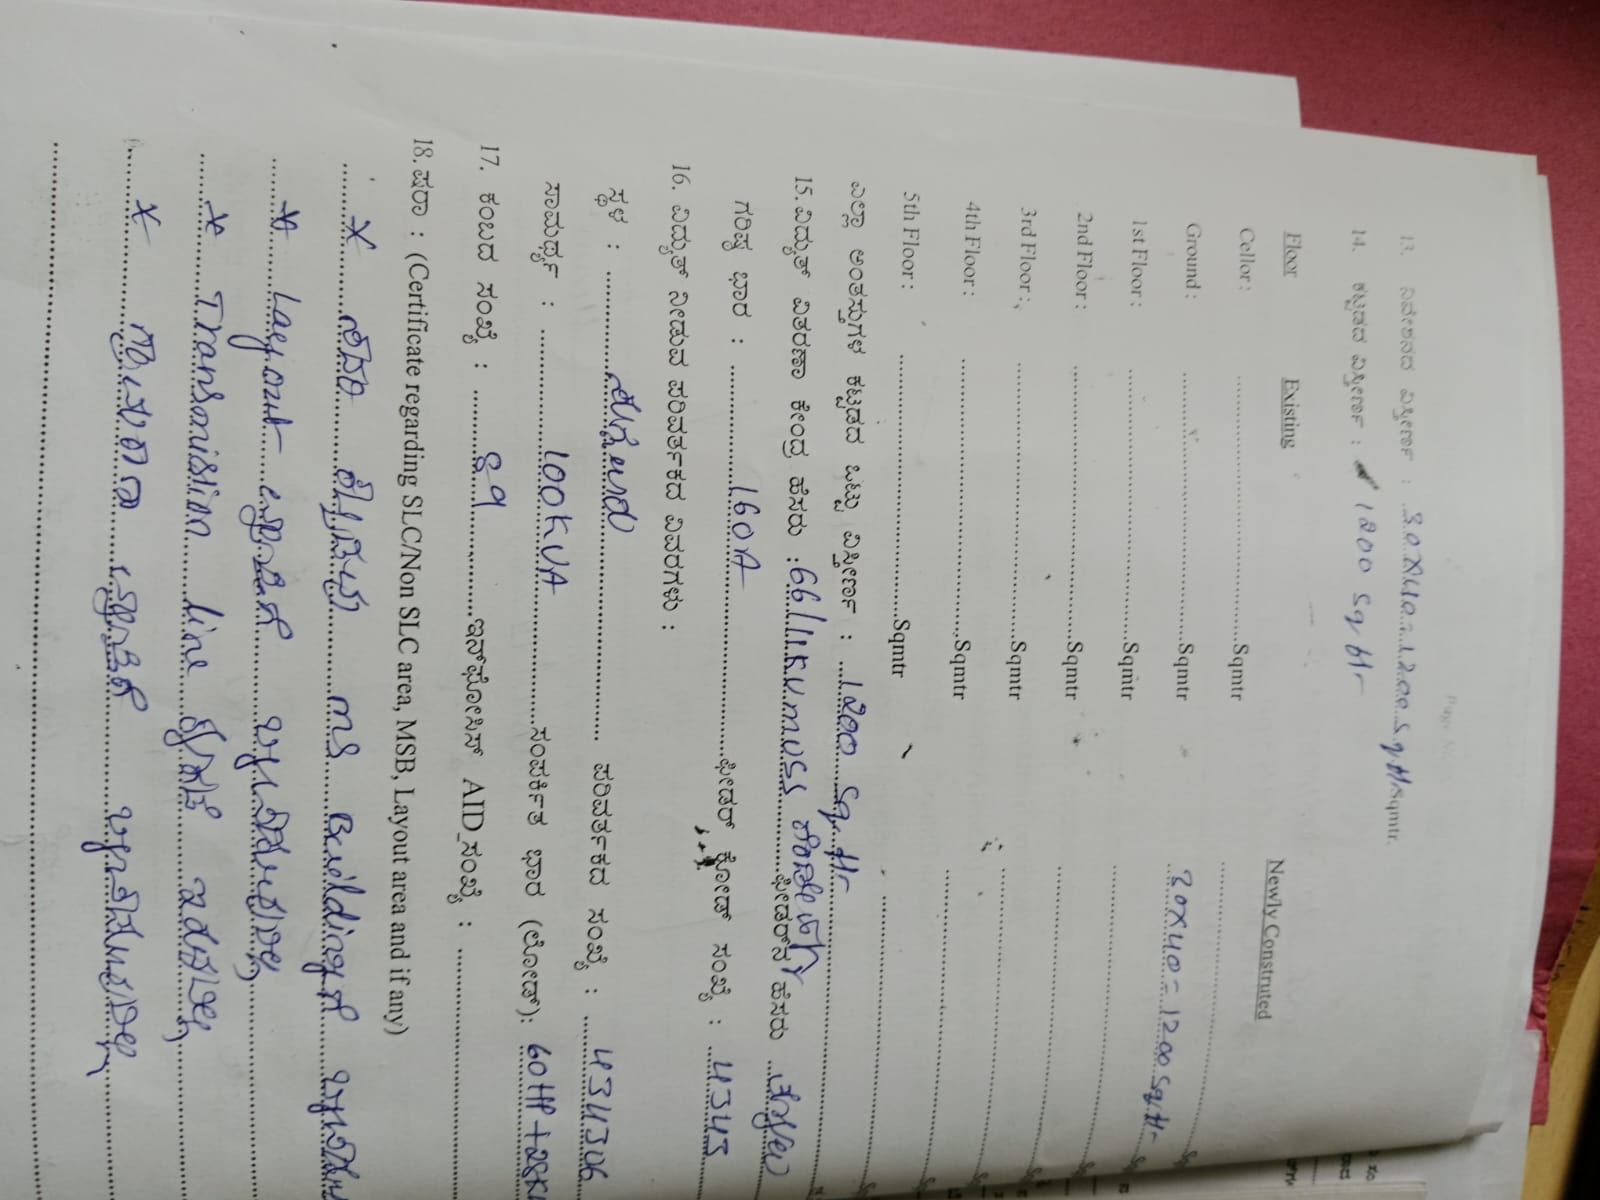 Page No.
13. ನಿವೇಶನದ ವಿಸ್ತೀರ್ಣ : 30X40=1200 Sq Ht Sqmtr.
14. ಕಟ್ಟಡದ ವಿಸ್ತೀರ್ಣ : 1200 Sq Ht
Floor Existing Newly Constructed
Cellor : Sqmtr
Ground : Sqmtr 30X40=1200 Sq Ht
1st Floor : Sqmtr
2nd Floor : Sqmtr
3rd Floor : Sqmtr
4th Floor : Sqmtr
5th Floor : Sqmtr
ಎಲ್ಲಾ ಅಂತಸ್ತುಗಳ ಕಟ್ಟಡದ ಒಟ್ಟು ವಿಸ್ತೀರ್ಣ : 1200 Sq Ht
15. ವಿದ್ಯುತ್ ವಿತರಣಾ ಕೇಂದ್ರ ಹೆಸರು : 66/11KV MUSS ಫೀಡರ್‌ನ ಹೆಸರು
ಗರಿಷ್ಠ ಭಾರ : 160A ಫೀಡರ್ ಕೋಡ್ ಸಂಖ್ಯೆ : 4345
16. ವಿದ್ಯುತ್ ನೀಡುವ ಪರಿವರ್ತಕದ ವಿವರಗಳು :
ಸ್ಥಳ : ಪರಿವರ್ತಕದ ಸಂಖ್ಯೆ : 434306
ಸಾಮರ್ಥ್ಯ : 100KVA ಸಂಪರ್ಕಿತ ಭಾರ (ಲೋಡ್): 60HP+28K
17. ಕಂಬದ ಸಂಖ್ಯೆ : ಇನ್‌ಫೋಸಿಸ್ AID_ಸಂಖ್ಯೆ :
18. ಷರಾ : (Certificate regarding SLC/Non SLC area, MSB, Layout area and if any)
* ಸದರಿ MS Buildingಗೆ
* Layout ವ್ಯಾಪ್ತಿಗೆ ಒಳಪಡುವುದಿಲ್ಲ
* Transmistion line
* ವ್ಯಾಪ್ತಿಗೆ ಒಳಪಡುವುದಿಲ್ಲ